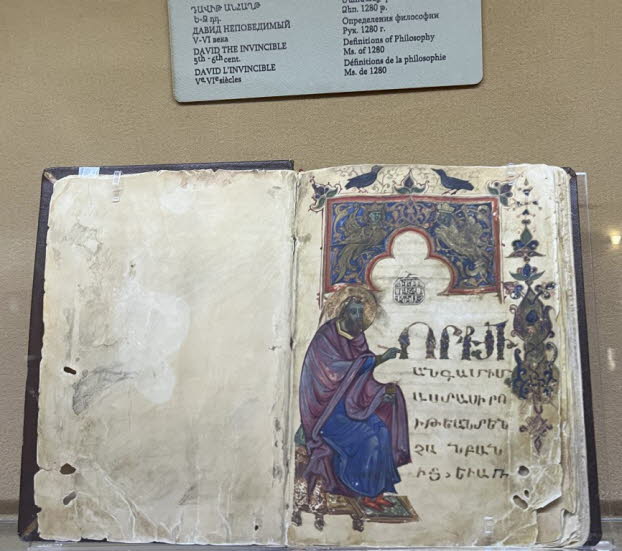 ԴԱՎԻԹ ԱՆՀԱՂԹ
Ե-Զ դդ.
ДАВИД НЕПОБЕДИМЫЙ
V-VI века
DAVID THE INVINCIBLE
5th - 6th cent.
DAVID L'INVINCIBLE
Ve-VIe siècles
Ձեռ. 1280 թ.
Определения философии
Рук. 1280 г.
Definitions of Philosophy
Ms. of 1280
Définitions de la philosophie
Ms. de 1280
ՈՐՔՄԻ
ԱՆԳԱՄԻՄ
ԱՍՏԱՍԻՐՈ
ՒԹԵԱՆՐԵՆ
ՉԱ ՆԲԱՆ
ԻՑ, ԵՒԱՌ